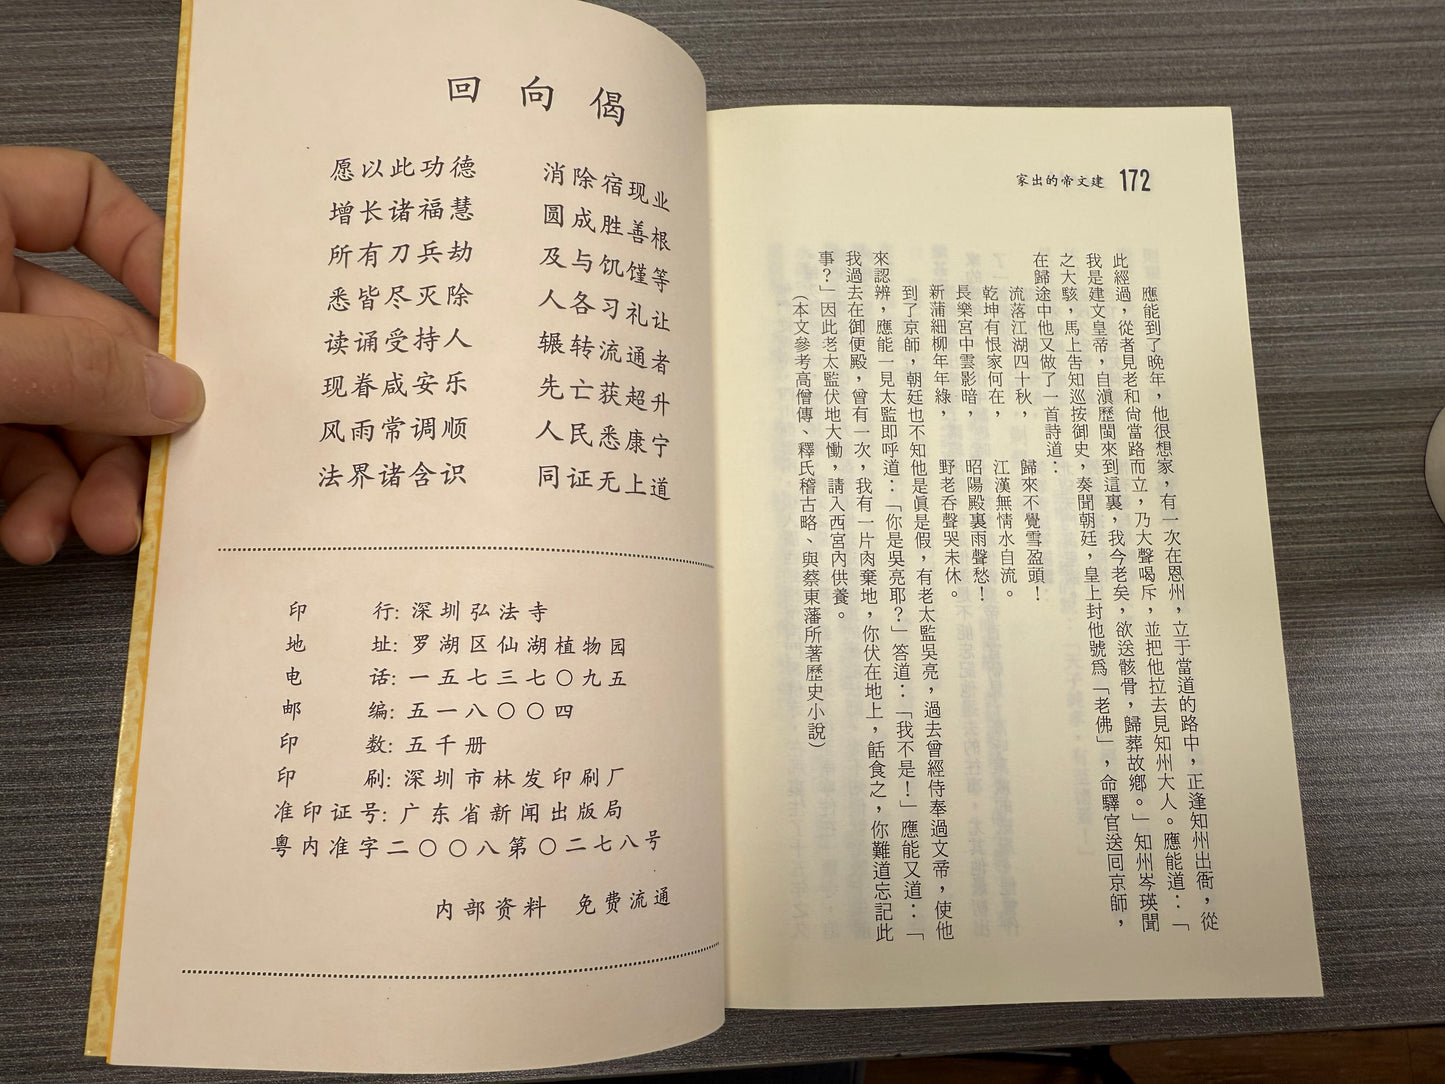 回向偈
愿以此功德 消除宿现业
增长诸福慧 圆成胜善根
所有刀兵劫 及与饥馑等
悉皆尽灭除 人各习礼让
读诵受持人 辗转流通者
现眷咸安乐 先亡获超升
风雨常调顺 人民悉康宁
法界诸含识 同证无上道
印行:深圳弘法寺
地址:罗湖区仙湖植物园
电话:一五七三七〇九五
邮编:五一八〇〇四
印数:五千册
印刷:深圳市林发印刷厂
准印证号:广东省新闻出版局
粤内准字二〇〇八第〇二七八号
内部资料 免费流通
家出的帝文建 172
應能到了晚年，他很想家，有一次在恩州，立于當道的路中，正逢知州出衙，從
此經過，從者見老和尚當路而立，乃大聲喝斥，並把他拉去見知州大人。應能道：「
我是建文皇帝，自滇歷閩來到這裏，我今老矣，欲送骸骨，歸葬故鄉。」知州岑瑛聞
之大駭，馬上告知巡按御史，奏聞朝廷，皇上封他號爲「老佛」，命驛官送回京師，
在歸途中他又做了一首詩道：
流落江湖四十秋， 歸來不覺雪盈頭！
乾坤有恨家何在， 江漢無情水自流。
長樂宮中雲影暗， 昭陽殿裏雨聲愁！
新蒲細柳年年綠， 野老吞聲哭未休。
到了京師，朝廷也不知他是眞是假，有老太監吳亮，過去曾經侍奉過文帝，使他
來認辨，應能一見太監即呼道：「你是吳亮耶？」答道：「我不是！」應能又道：「
我過去在御便殿，曾有一次，我有一片肉棄地，你伏在地上，餂食之，你難道忘記此
事？」因此老太監伏地大慟，請入西宮內供養。
（本文參考高僧傳、釋氏稽古略、與蔡東藩所著歷史小說）